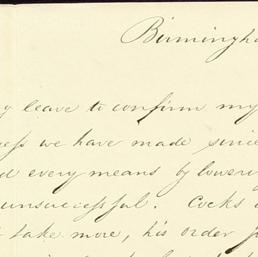 Birmingha
leave to confirm my
we have made since
every means by lowering
unsuccessful. Cocks
take more, his order